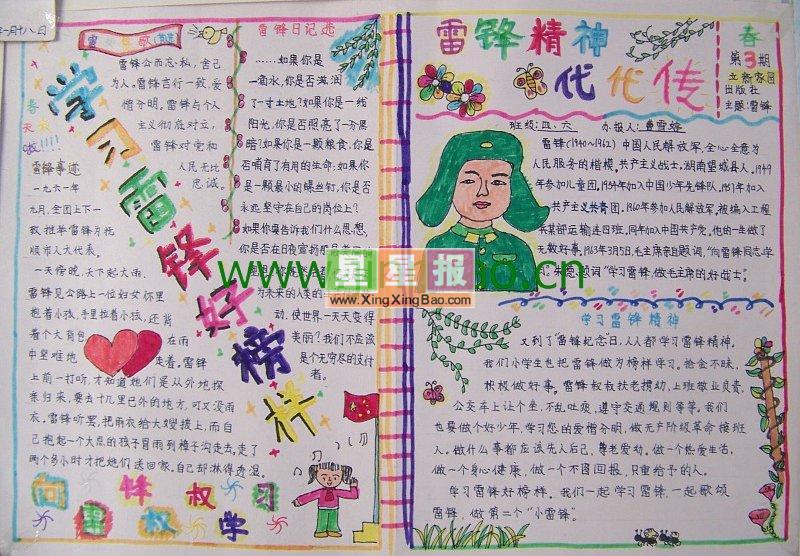 一月十八日
雷锋颂歌(节选)
雷锋公而忘私,舍己
为人。雷锋言行一致,爱
憎分明。雷锋与个人
主义彻底对立,
雷锋对党和
人民无比
忠诚。
春天来啦!!!!
学习雷锋好榜样
雷锋事迹
一九六一年
九月,全团上下一
致推举雷锋为抚
顺市人大代表。
一天傍晚,天下起大雨,
雷锋见公路上一位妇女怀里
抱着小孩,手里拉着小孩,还背
着个大背包 在雨
中坚难地 走着。雷锋
上前一打听,才知道她们是从外地探
亲归来,要去十几里已外的地方,可又没雨
衣。雷锋听罢,把雨衣给大嫂披上,而自
己抱起一个大点的孩子冒雨到樟子沟走去。走了
两个多小时才把她们送回家,自己却淋得透湿。
向雷锋叔叔学习
雷锋日记选
……如果你是
一滴水,你是否滋润
了一寸土地?如果你是一线
阳光,你是否照亮了一分黑
暗?如果你是一颗粮食,你是
否哺育了有用的生命;如果你
是一颗最小的螺丝钉,你是否
永远坚守在自己的岗位上?
如果你要告诉我们什么思想,
你是否在日夜宣扬那最美
为未来的人类的
动,使世界一天天变得
美丽?我们不应该
是个无穷尽的支付
者。
雷锋精神
代代传
春
第3期
立新家园
出版社
主题:雷锋
班级:四、六 办报人:
雷锋(1940~1962)中国人民解放军,全心全意为
人民服务的楷模。共产主义战士。湖南望城县人。1949
年参加儿童团。1954年加入中国少年先锋队。1957年加入
共产主义共青团。1960年参加人民解放军,被编入工程
兵某部运输连四班,同年加入中国共产党。他的一生做了
无数好事。1963年3月5日,毛主席亲自题词。"向雷锋同志学
习。"朱 题词"学习雷锋,做毛主席的好战士。"
学习雷锋精神
又到了"雷锋纪念日,人人都学习雷锋精神。
我们小学生也把雷锋做为榜样学习。拾金不昧,
积极做好事。雷锋叔叔扶老携幼,上班敬业负责,
公交车上让个坐,不乱吐痰,遵守交通规则等等。我们
也要做个好少年,学习您的爱憎分明,做无产阶级革命接班
人。做什么事都应该先人后己,尊老爱幼,做一个热爱生活,
做一个身心健康,做一个不图回报,只重给予的人。
学习雷锋好榜样。我们一起学习雷锋,一起歌颂
雷锋,做第二个"小雷锋"。
星星报
www.XingXingBao.com